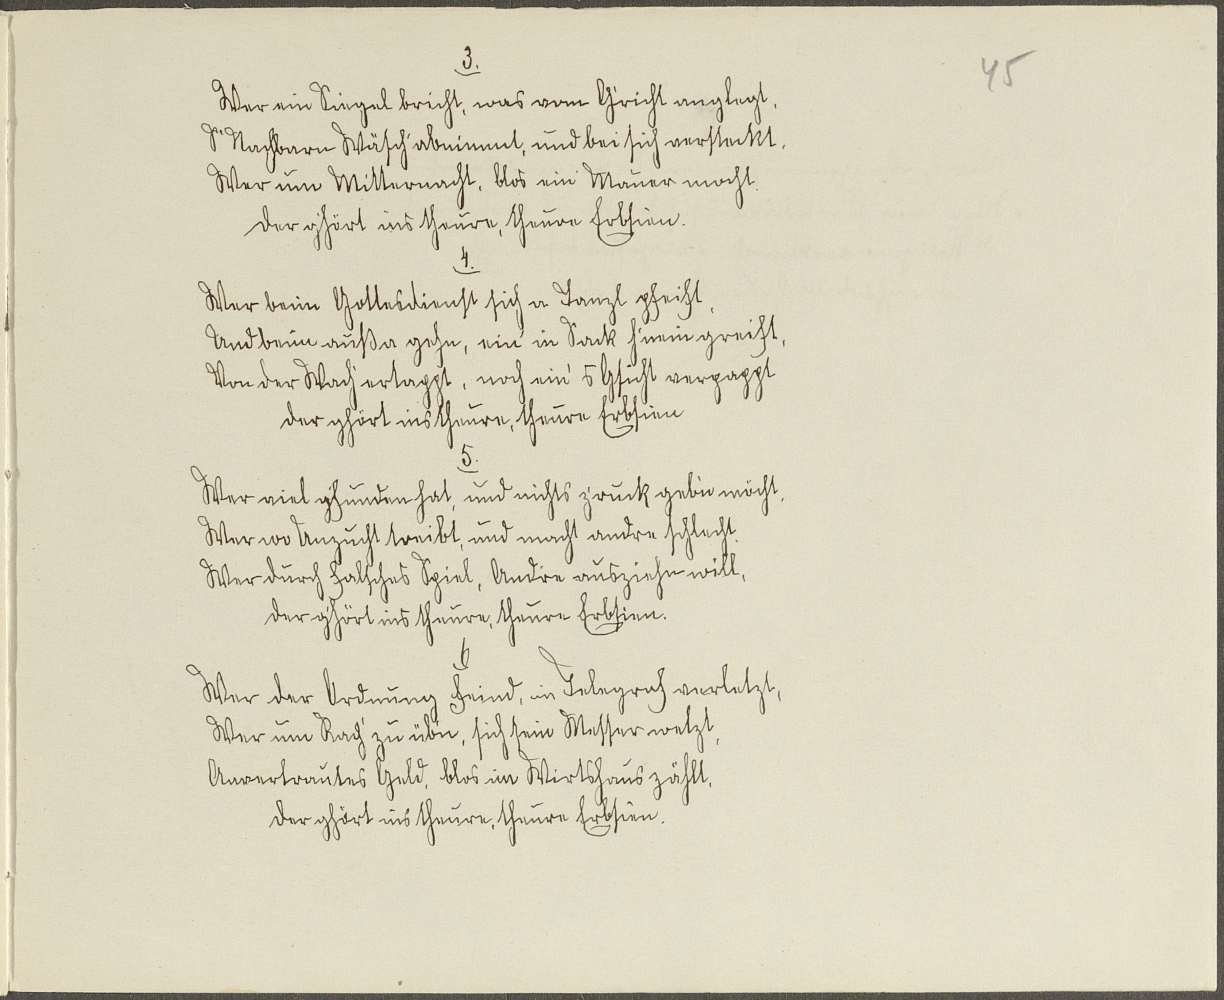 45
3.
Wer ein Siegel bricht, was vom G'richt anglegt,
S' Nachbarn Wäsch' abnimmt, und bei sich versteckt.
Wer um Mitternacht, blos ein' Mauer macht.
der g'hört ins theure, theure Erbsien.
4.
Wer beim Gottesdienst sich a Tanzl pfeift,
Und beim außa gehn, ein' in Sack h'nein greift,
Von der Wach' ertappt, noch ein' s Gsicht verpappt
der ghört ins theure, theure Erbsien
5.
Wer viel g'funden hat, und nichts z'ruck geb'n möcht,
Wer wo Unzucht treibt, und macht andre schlecht.
Wer durch falsches Spiel, Andre ausziehn will,
der g'hört ins theure, theure Erbsien.
6
Wer der Ordnung Feind, in Telegraf verletzt,
Wer um Rach' zu üb'n, sich sein Messer wetzt,
Anvertrautes Geld, blos im Wirtshaus zählt,
der ghört ins theure, theure Erbsien.